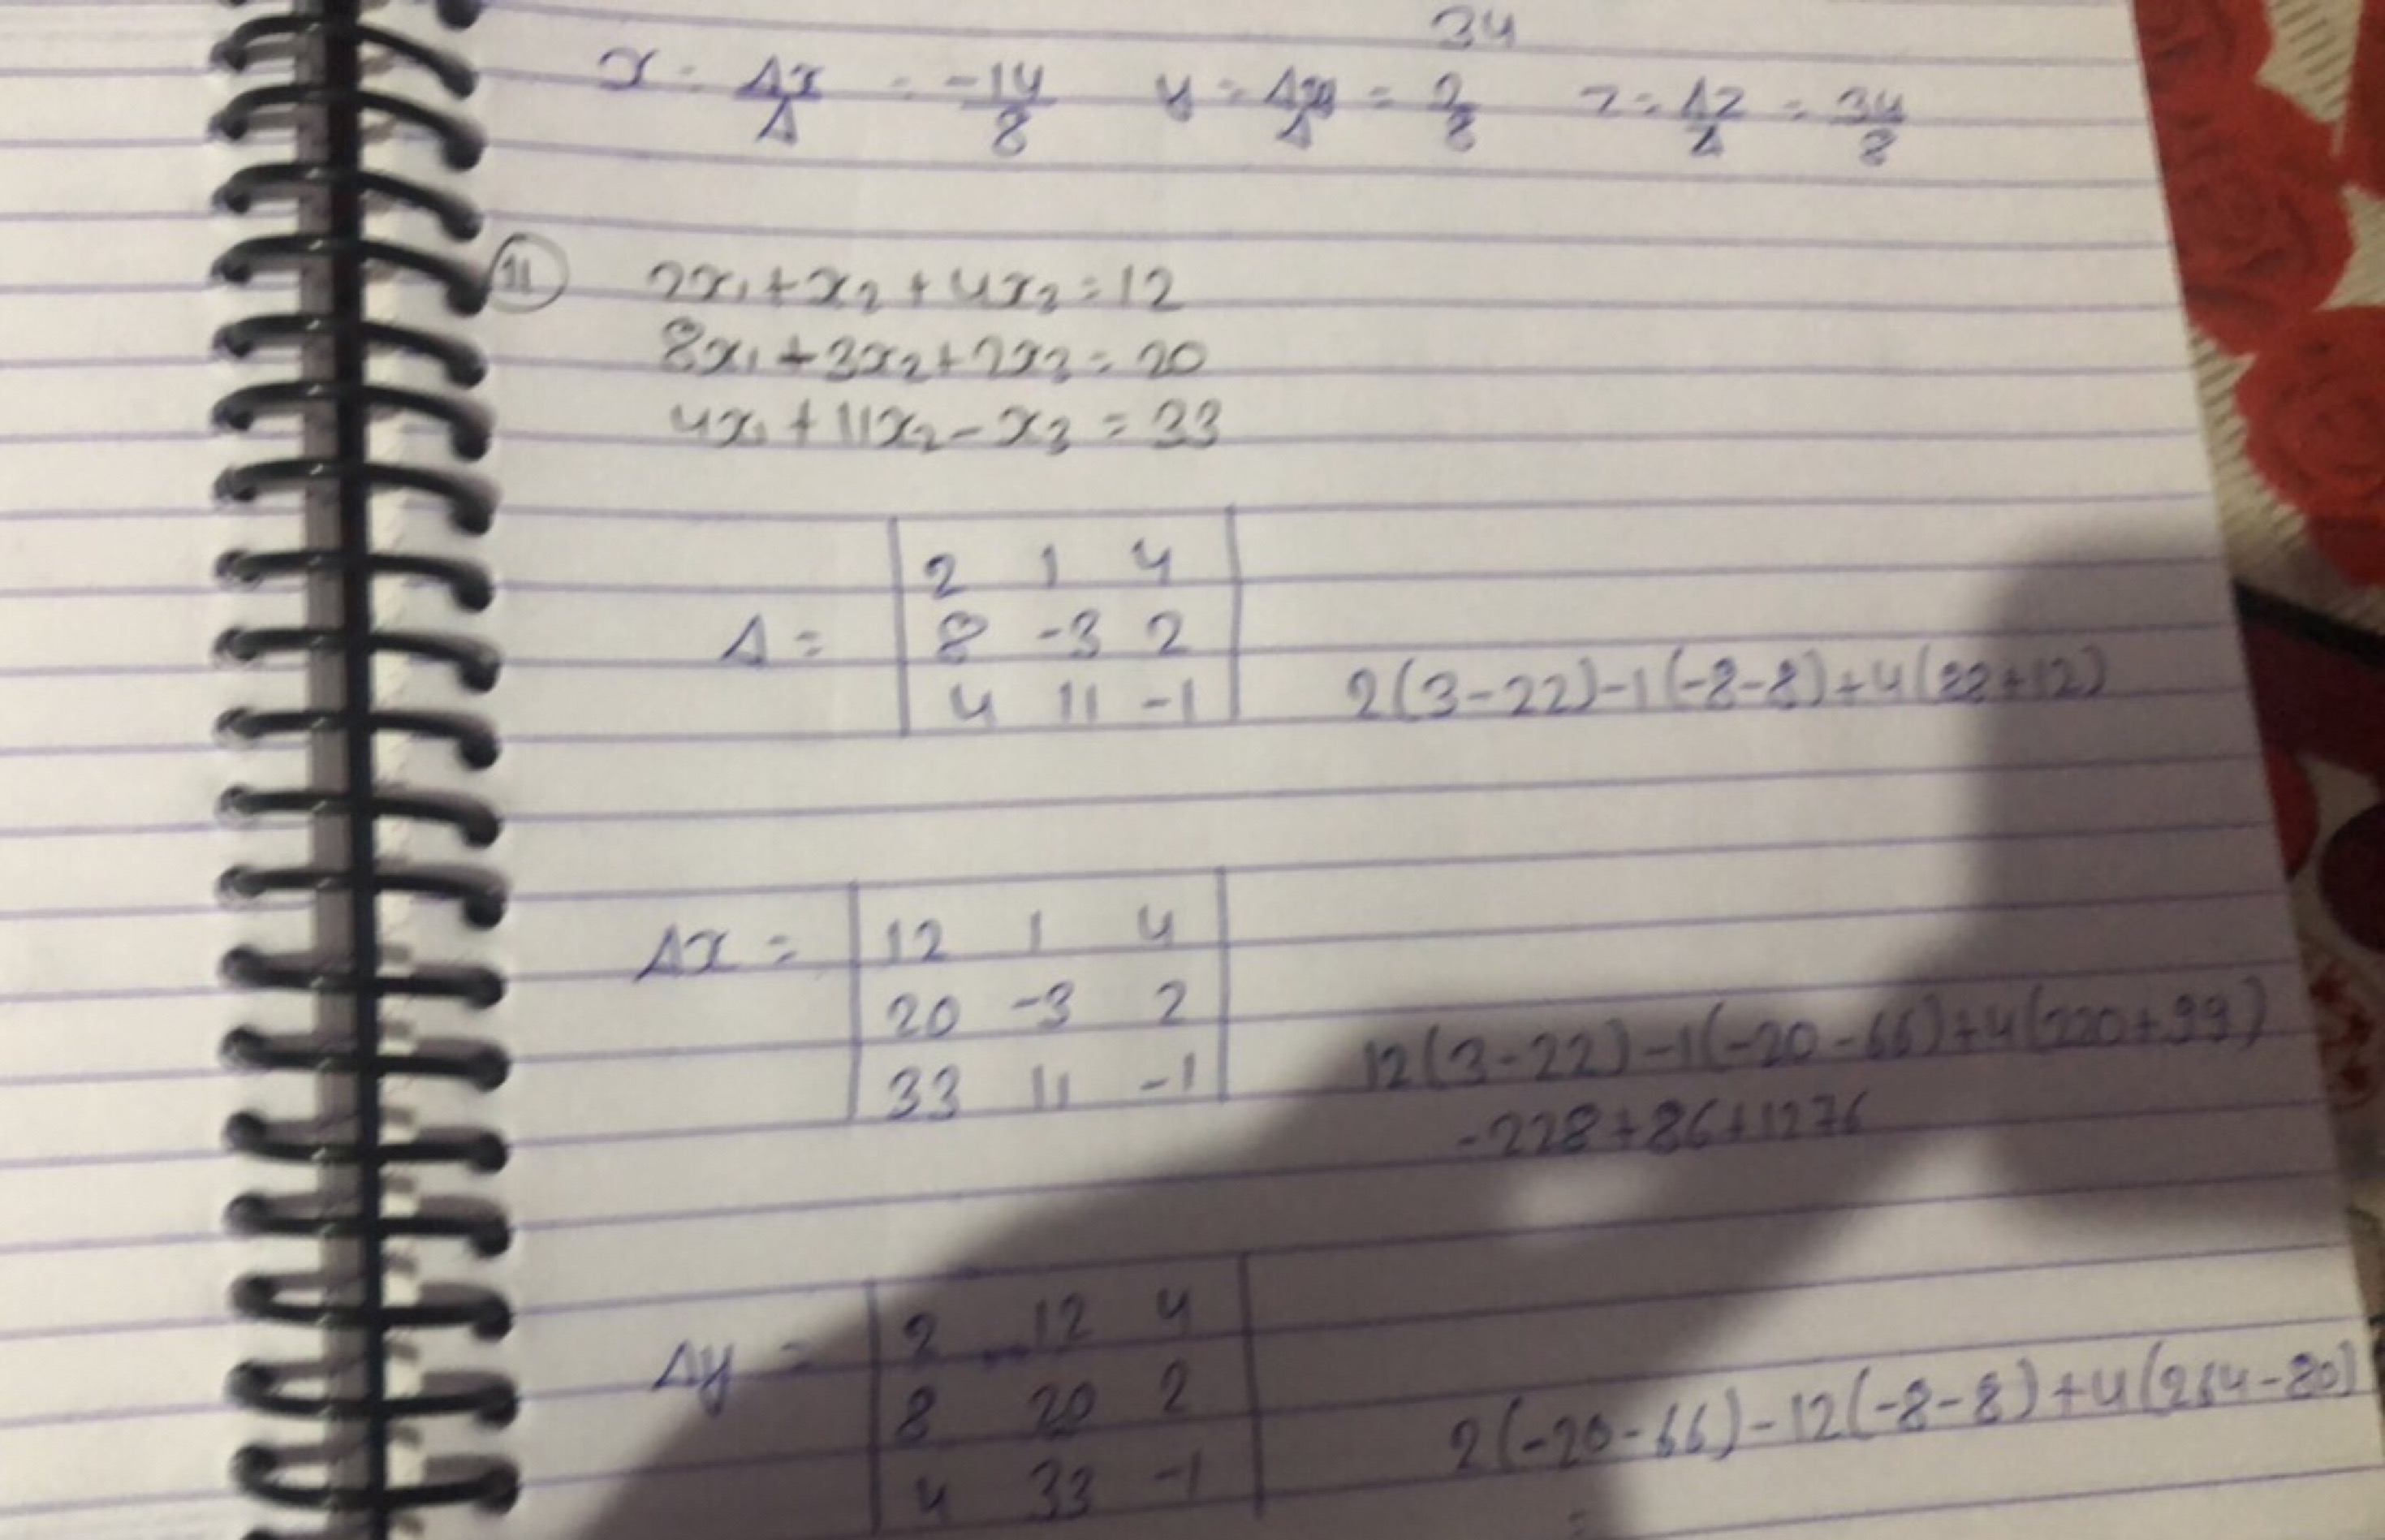 34
x = Δx/Δ = -14/8 y = Δy/Δ = 2/8 z = Δz/Δ = 34/8
11 2x₁ + x₂ + 4x₃ = 12
8x₁ + 3x₂ + 2x₃ = 20
4x₁ + 11x₂ - x₃ = 33
2 1 4
Δ = 8 -3 2
4 11 -1 2(3-22)-1(-8-8)+4(88+12)
Δx = 12 1 4
20 -3 2
33 11 -1 12(3-22)-1(-20-66)+4(220+99)
-228+86+1276
Δy = 2 12 4
8 20 2 2(-20-66)-12(-8-8)+4(264-80)
4 33 -1 =